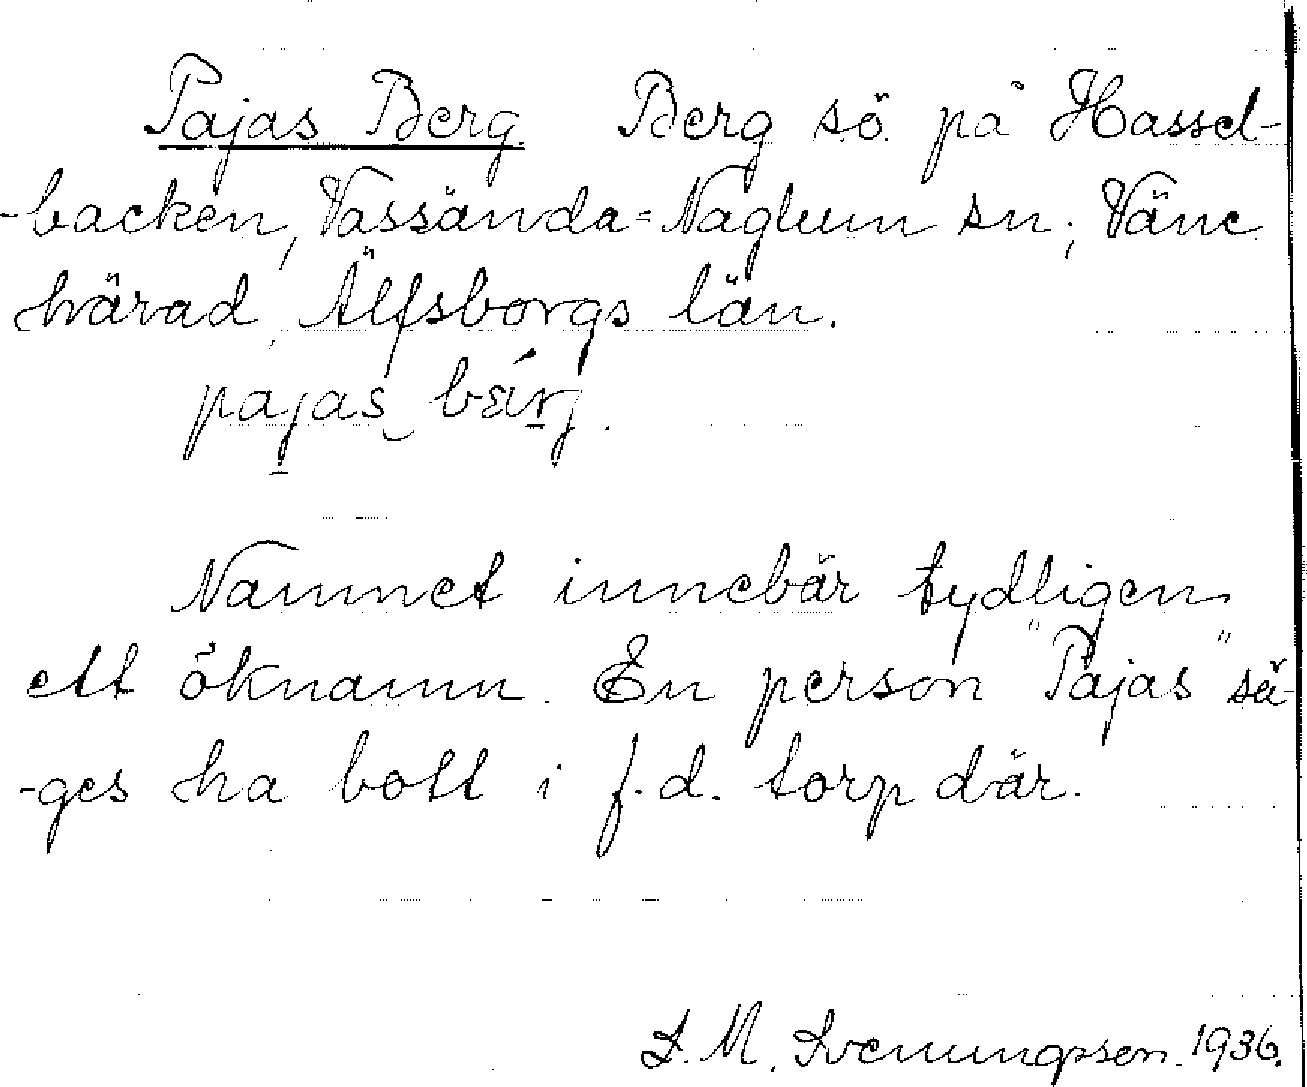 Pajas Berg. Berg sö. på Hassel-
-backen, Vassända=Naglum sn; Väne
härad, Älfsborgs län.
pajas bærj.
Namnet innebär tydligen
ett öknamn. En person "Pajas" sä-
-ges ha bott i f.d. torp där.
L.M. Svenungsson. 1936.